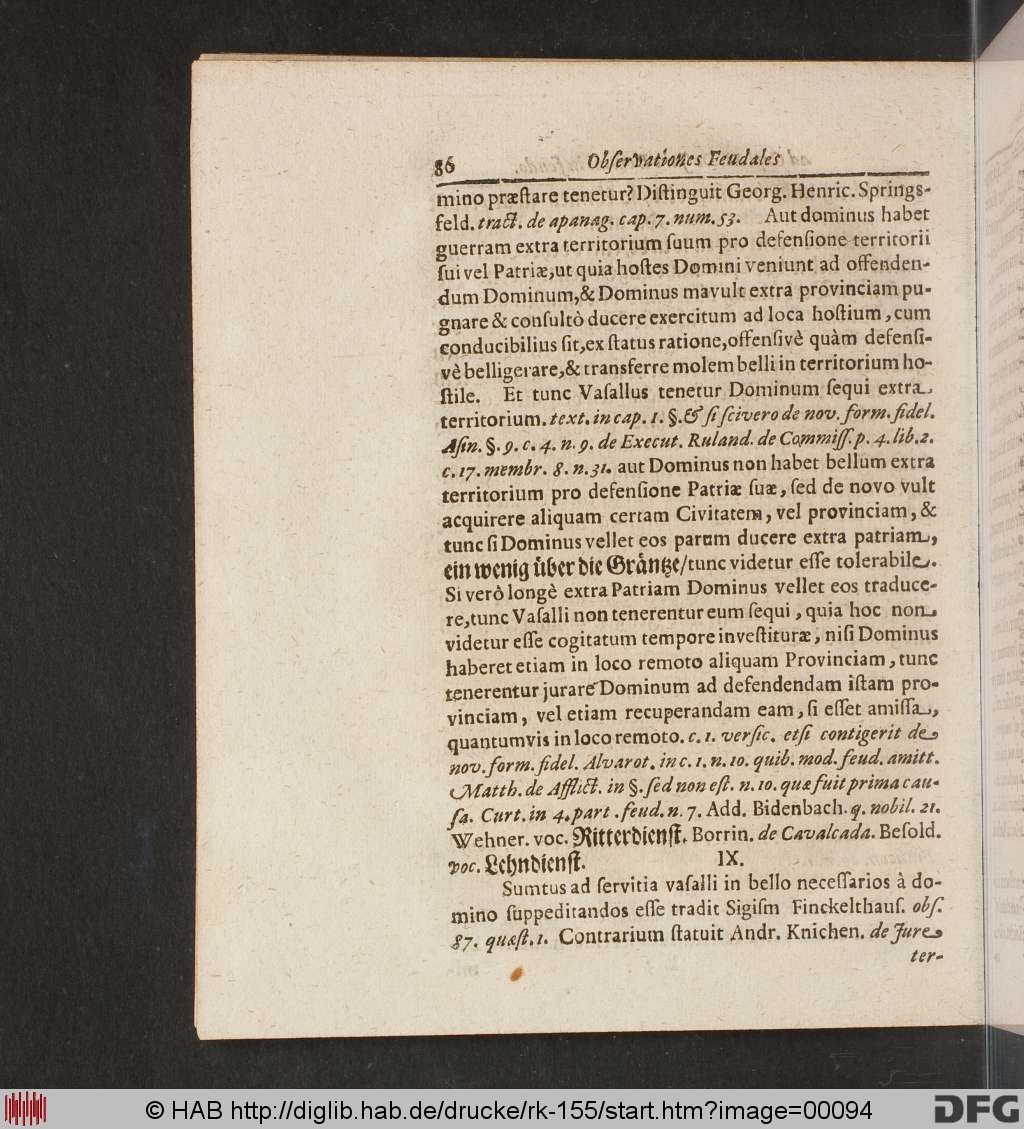 86 Obſervationes Feudales
mino præſtare tenetur? Diſtinguit Georg. Henric. Springs-
feld. tract. de apanag. cap. 7. num. 53. Aut dominus habet
guerram extra territorium ſuum pro defenſione territorii
ſui vel Patriæ, ut quia hoſtes Domini veniunt ad offenden-
dum Dominum, & Dominus mavult extra provinciam pu-
gnare & conſultò ducere exercitum ad loca hoſtium, cum
conducibilius ſit, ex ſtatus ratione, offenſivè quàm defenſi-
vè belligerare, & transferre molem belli in territorium ho-
ſtile. Et tunc Vaſallus tenetur Dominum ſequi extra
territorium. text. in cap. 1. §. & ſi ſcivero de nov. form. fidel.
Aſin. §. 9. c. 4. n. 9. de Execut. Ruland. de Commiſſ. p. 4. lib. 2.
c. 17. membr. 8. n. 31. aut Dominus non habet bellum extra
territorium pro defenſione Patriæ ſuæ, ſed de novo vult
acquirere aliquam certam Civitatem, vel provinciam, &
tunc ſi Dominus vellet eos parum ducere extra patriam,
ein wenig über die Gräntze/ tunc videtur eſſe tolerabile.
Si verò longè extra Patriam Dominus vellet eos traduce-
re, tunc Vaſalli non tenerentur eum ſequi, quia hoc non
videtur eſſe cogitatum tempore inveſtituræ, niſi Dominus
haberet etiam in loco remoto aliquam Provinciam, tunc
tenerentur jurare Dominum ad defendendam iſtam pro-
vinciam, vel etiam recuperandam eam, ſi eſſet amiſſa,
quantumvis in loco remoto. c. 1. verſic. etſi contigerit de
nov. form. fidel. Alvarot. in c. 1. n. 10. quib. mod. feud. amitt.
Matth. de Afflict. in §. ſed non eſt. n. 10. quæ fuit prima cau-
ſa. Curt. in 4. part. feud. n. 7. Add. Bidenbach. q. nobil. 21.
Wehner. voc. Ritterdienſt. Borrin. de Cavalcada. Beſold.
voc. Lehndienſt. IX.
Sumtus ad ſervitia vaſalli in bello neceſſarios à do-
mino ſuppeditandos eſſe tradit Sigiſm Finckelthauſ. obſ.
87. quæſt. 1. Contrarium ſtatuit Andr. Knichen. de Jure
ter-
© HAB http://diglib.hab.de/drucke/rk-155/start.htm?image=00094
DFG